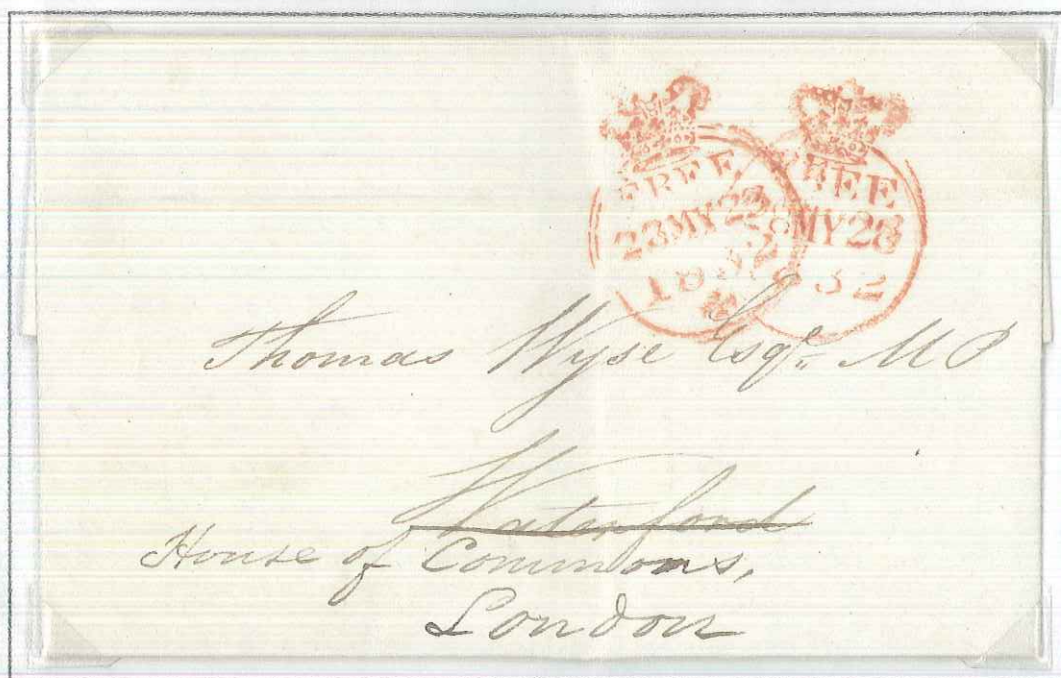 FREE
23MY23
1832
FREE
28MY28
1832
Thomas Wyse Esqr. MP
Waterford
House of Commons,
London